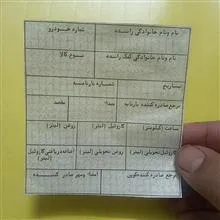 نام ونام خانوادگی راننده شماره خودرو
نام ونام خانوادگی کمک راننده نوع کالا
تاریخ شماره بارنامه
مرجع صادره کننده بارنامه مبدا مقصد
مسافت (کیلومتر) گازوئیل (لیتر) روغن (لیتر)
گازوئیل تحویلی (لیتر) روغن تحویلی (لیتر) اضافه دریافتی گازوئیل (لیتر)
مرجع صادره کننده کوپن امضا ومهر صادر کننده